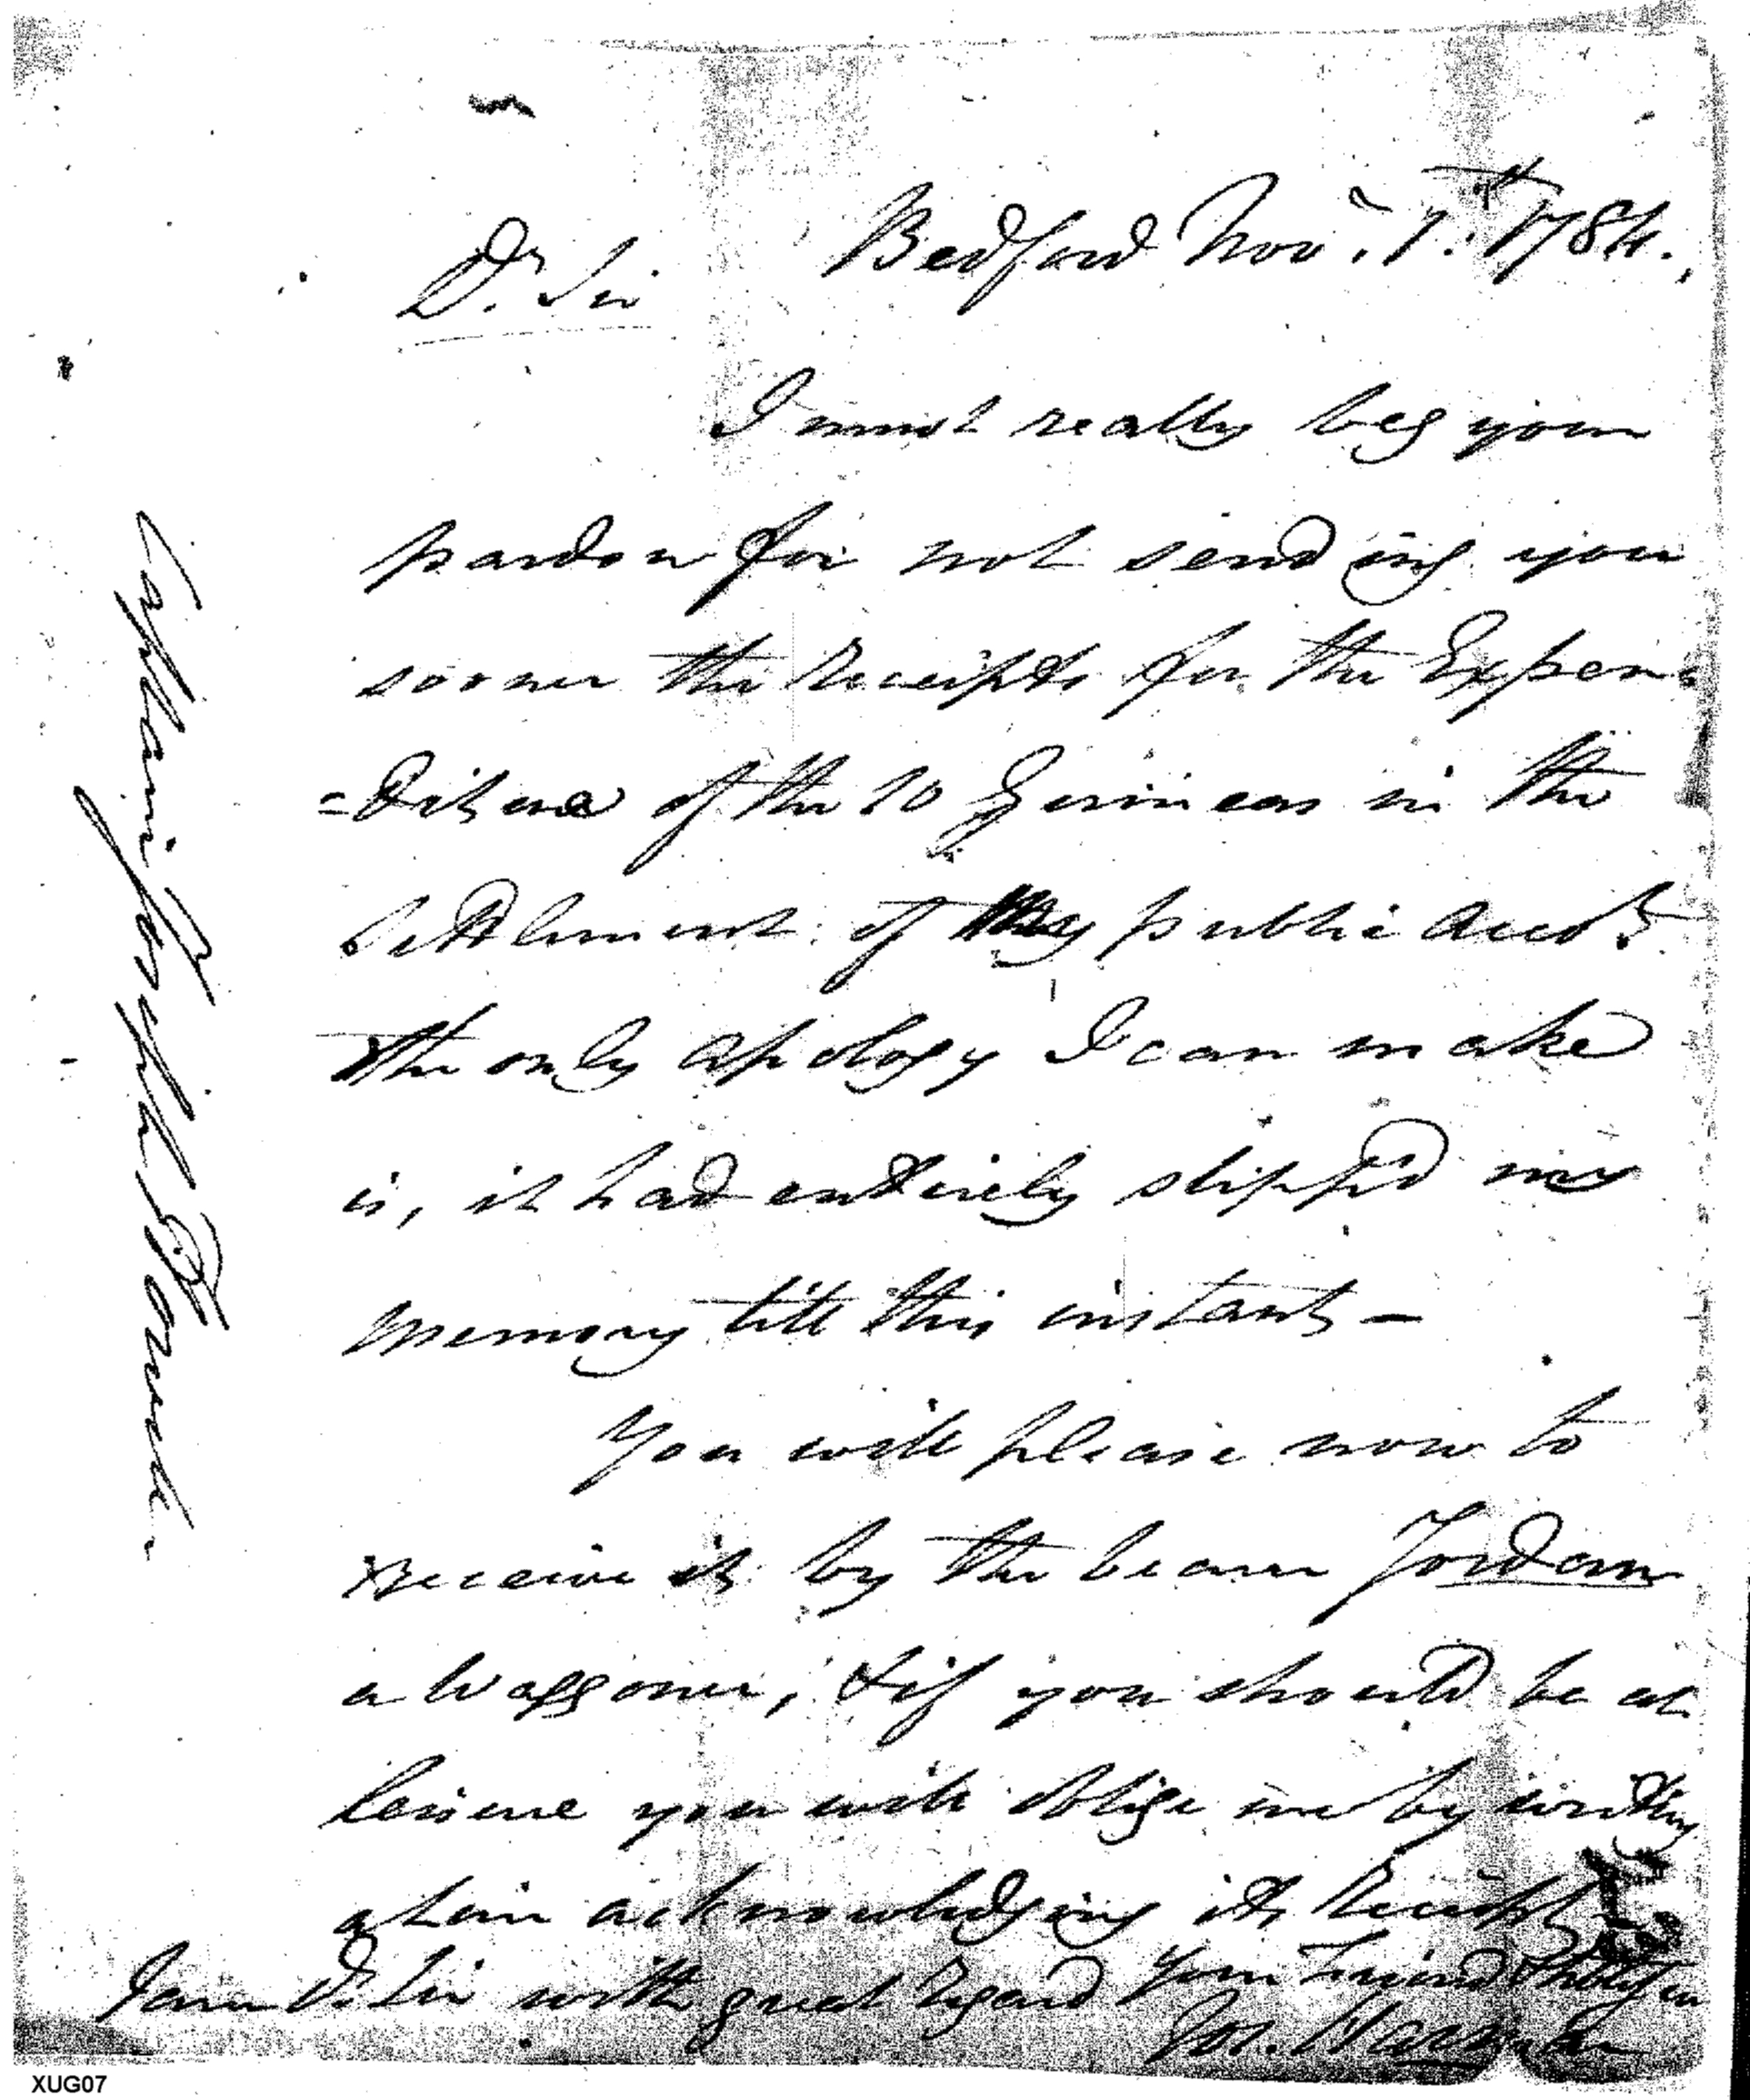 Bedford Nov. 7th. 1784.
Dr. Sir
I must really beg your
pardon for not sending you
sooner the receipts for the Expen=
=diture of the 10 Guineas in the
Settlement of my public Accots.
the only apology I can make
is, it had entirely slipp'd my
memory till this instant —
You will please now to
receive it by the bearer Jordan
a Waggoner, & if you should be at
leisure you will oblige me by writing
a Line acknowledging its Receipt
I am Dr. Sir with great regard your Friend &
Jos.
Captain Joseph
XUG07